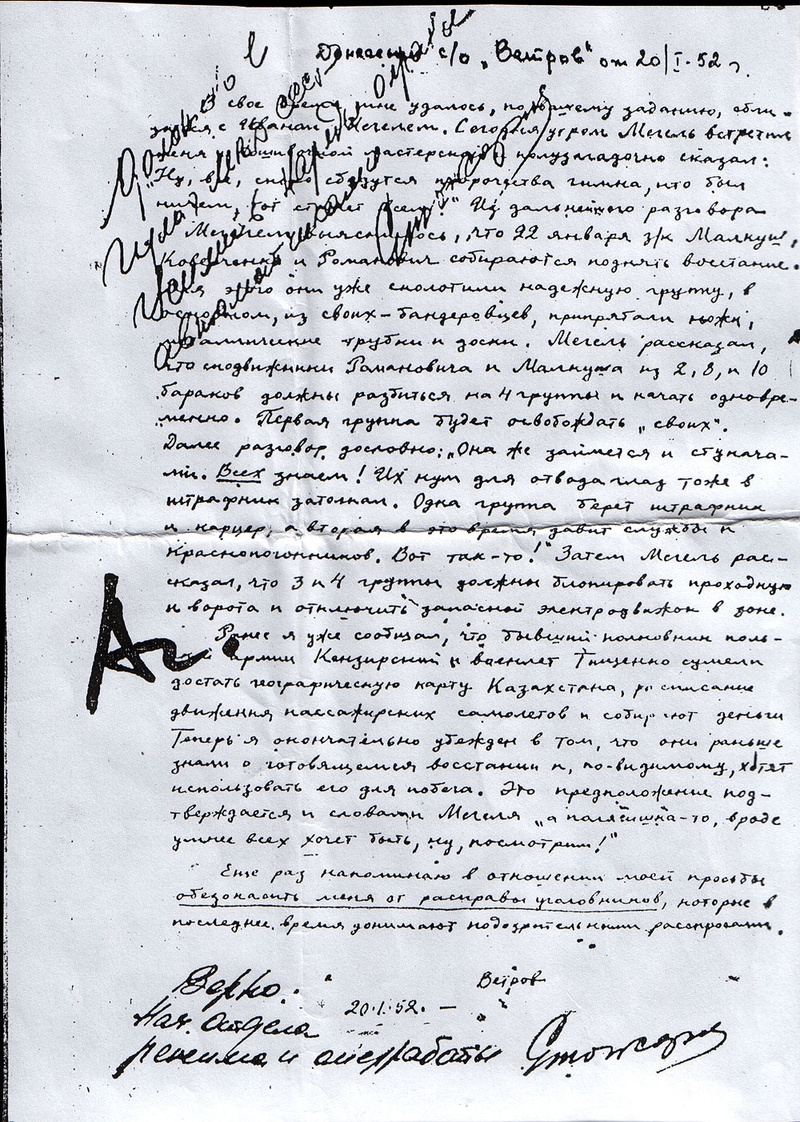 Донесение с/о „Ветров" от 20/I-52 г.
В свое время мне удалось, по вашему заданию, сбли-
зиться с Иваном Мегелем. Сегодня утром Мегель встретил
меня в пошивочной мастерской и полузагадочно сказал:
„Ну, все, скоро сбудутся пророчества гимна, кто был
ничем, тот станет всем!" Из дальнейшего разговора
с Мегелем выяснилось, что 22 января з/к Малкуш,
Коверченко и Романович собираются поднять восстание.
Для этого они уже сколотили надежную группу, в
основном, из своих – бандеровцев, припрятали ножи,
металлические трубки и доски. Мегель рассказал,
что сподвижники Романовича и Малкуша из 2, 8, и 10
бараков должны разбиться на 4 группы и начать одновре-
менно. Первая группа будет освобождать „своих".
Далее разговор дословно: „Она же займется и стукача-
ми. Всех знаем! Их кум для отвода глаз тоже в
штрафник затолкал. Одна группа берет штрафник
и карцер, а вторая в это время давит службы и
краснопогонников. Вот так-то!" Затем Мегель рас-
сказал, что 3 и 4 группы должны блокировать проходную
и ворота и отключить запасной электродвижок в зоне.
Ранее я уже сообщал, что бывший полковник поль-
ской армии Кензирский и военлет Тищенко сумели
достать географическую карту Казахстана, расписание
движения пассажирских самолетов и собирают деньги
Теперь я окончательно убежден в том, что они раньше
знали о готовящемся восстании и, по-видимому, хотят
использовать его для побега. Это предположение под-
тверждается и словами Мегеля „а полячишка-то, вроде
умнее всех хочет быть, ну, посмотрим!"
Еще раз напоминаю в отношении моей просьбы
обезопасить меня от расправы уголовников, которые в
последнее время донимают подозрительными расспросами.
Ветров
20.1.52. –
Верно:
Нач. отдела
режима и оперработы
Аг.